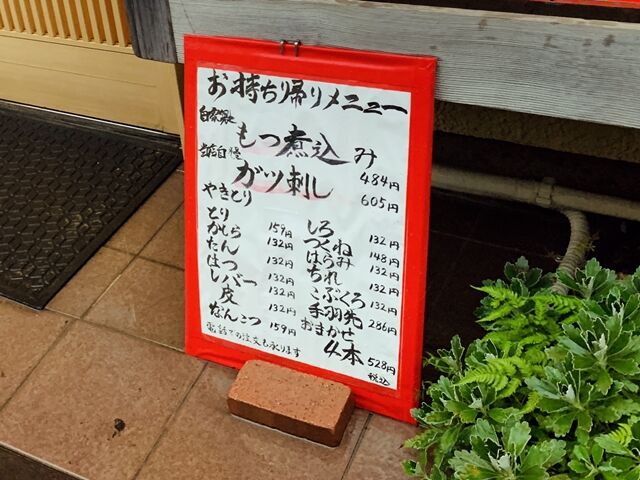 お持ち帰りメニュー
自家製
もつ煮込み 484円
当店自慢
ガツ刺し 605円
やきとり
とり 159円
かしら 132円
たん 132円
はつ 132円
レバー 132円
皮 132円
なんこつ 159円
しろ 132円
つくね 148円
はらみ 132円
ちれ 132円
こぶくろ 132円
手羽先 286円
おまかせ
4本 528円
税込
電話でのご注文も承ります